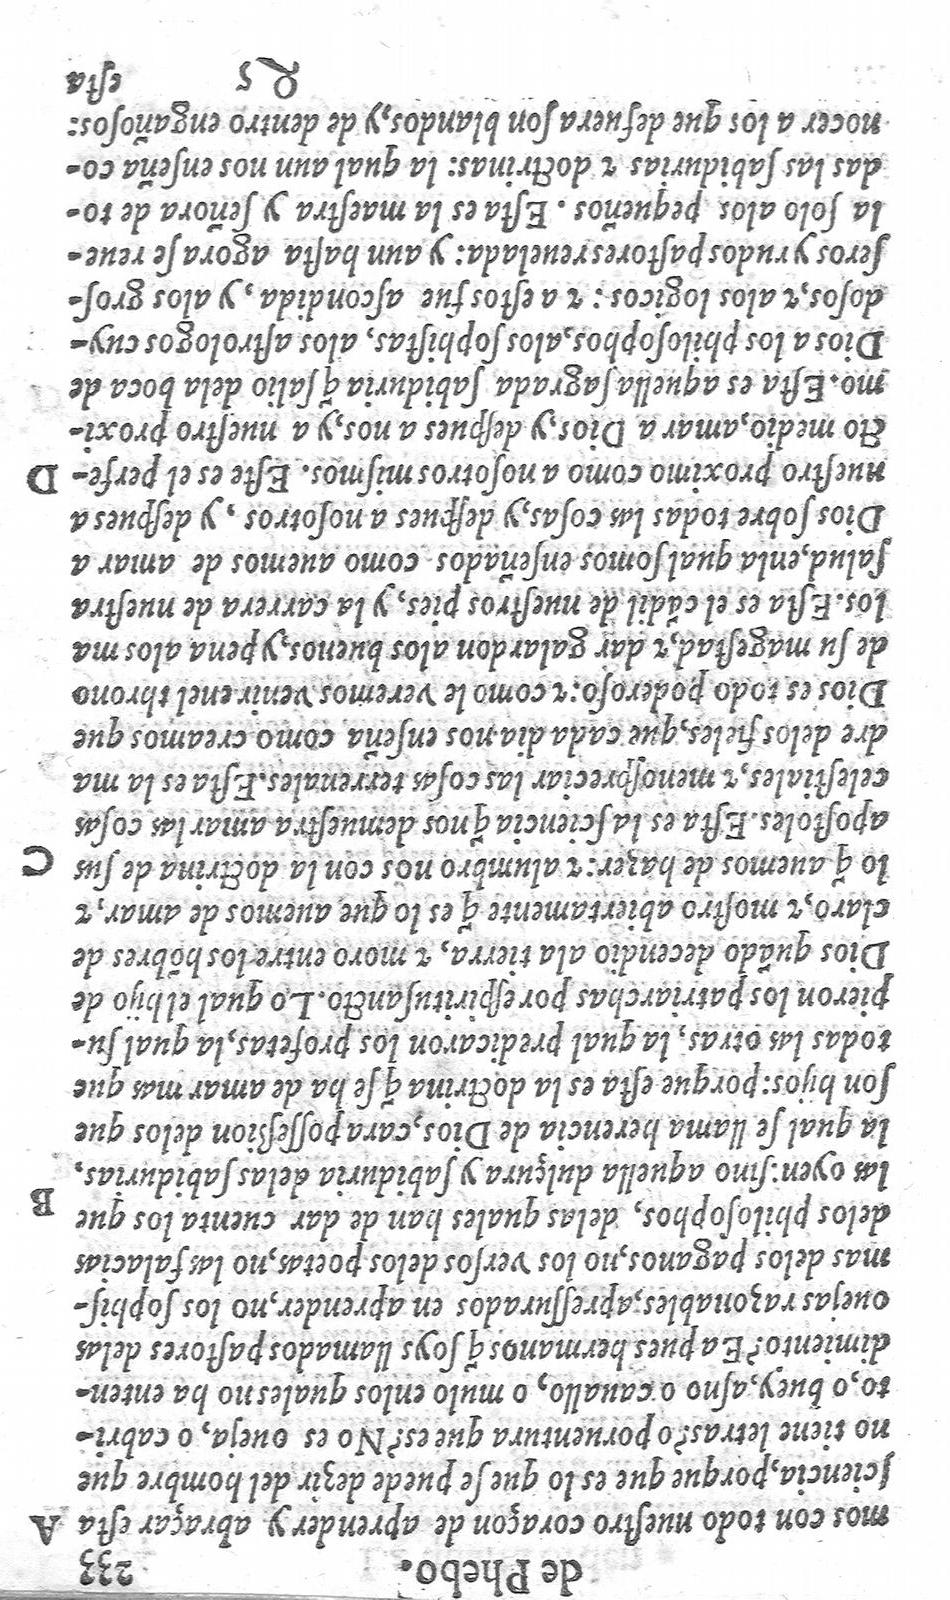 de Phebo. 233
mos con todo nuestro coraçon de aprender y abraçar esta A
sciencia, porque que es lo que se puede dezir del hombre que
no tiene letras? o porventura que es? No es oueja, o cabri-
to, o buey, asno o cauallo, o mulo enlos quales no ha enten-
dimiento? Ea pues hermanos q̃ soys llamados pastores delas
ouejas razonables, apressurados en aprender, no los sophis-
mas delos paganos, no los versos delos poetas, no las falacias
delos philosophos, delas quales han de dar cuenta los que B
las oyen: sino aquella dulçura y sabiduria delas sabidurias,
la qual se llama herencia de Dios, cara possession delos que
son hijos: porque esta es la doctrina q̃ se ha de amar mas que
todas las otras, la qual predicaron los profetas, la qual su-
pieron los patriarchas por espiritu sancto. Lo qual el hijo de
Dios quãdo decendio ala tierra, ⁊ moro entre los hõbres de
claro, ⁊ mostro abiertamente q̃ es lo que auemos de amar, ⁊
lo q̃ auemos de hazer: ⁊ alumbro nos con la doctrina de sus C
apostoles. Esta es la sciencia q̃ nos demuestra amar las cosas
celestiales, ⁊ menospreciar las cosas terrenales. Esta es la ma
dre delos fieles, que cada dia nos enseña como creamos que
Dios es todo poderoso: ⁊ como le veremos venir enel throno
de su magestad, ⁊ dar galardon alos buenos, y pena alos ma
los. Esta es el cãdil de nuestros pies, y la carrera de nuestra
salud, enla qual somos enseñados como auemos de amar a
Dios sobre todas las cosas, y despues a nosotros, y despues a
nuestro proximo como a nosotros mismos. Este es el perfe- D
cto medio, amar a Dios, y despues a nos, y a nuestro proxi-
mo. Esta es aquella sagrada sabiduria q̃ salio dela boca de
Dios a los philosophos, alos sophistas, alos astrologos cuy-
dosos, ⁊ alos logicos: ⁊ a estos fue ascondida, y alos gros-
seros y rudos pastores reuelada: y aun basta agora se reue-
la solo alos pequeños. Esta es la maestra y señora de to-
das las sabidurias ⁊ doctrinas: la qual aun nos enseña co-
nocer a los que defuera son blandos, y de dentro engañosos:
Q 5 esta